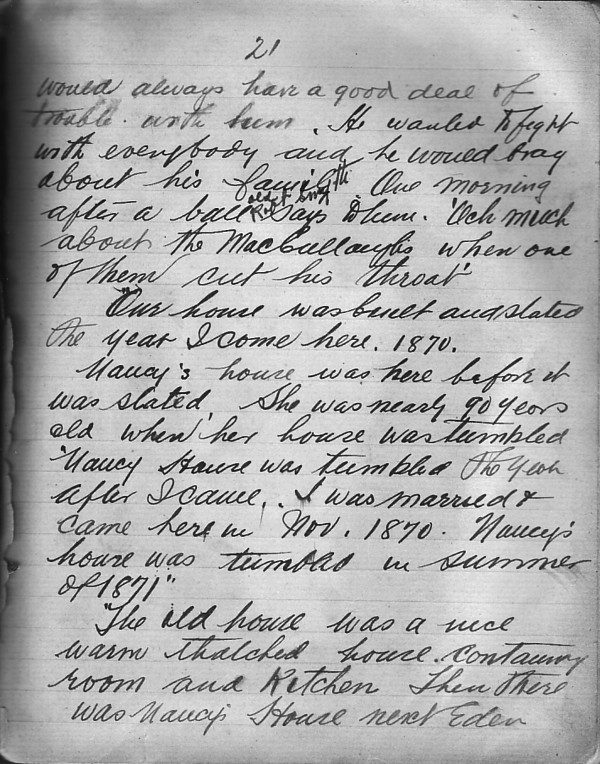 21
would always have a good deal of
trouble with him. He wanted to fight
with everybody and he would brag
about his family. One morning
after a ball says I to him. 'Och much
about the MacCullaughs when one
of them cut his throat'
"Our house was built and slated
the year I come here. 1870.
Nancy's house was here before it
was slated. She was nearly 90 years
old when her house was tumbled
"Nancy House was tumbled the year
after I came. I was married &
came here in Nov. 1870. Nancy's
house was tumbled in summer
of 1871"
"The old house was a nice
warm thatched house containing
room and kitchen Then there
was Nancy's House next Eden